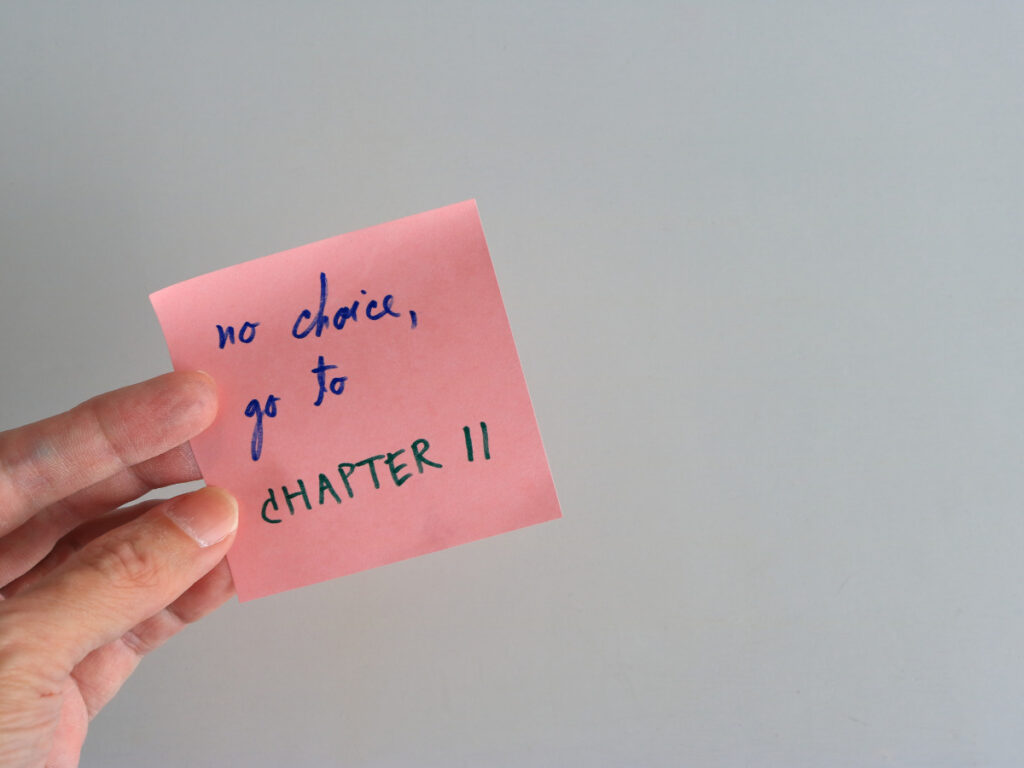 no choice,
go to
CHAPTER 11